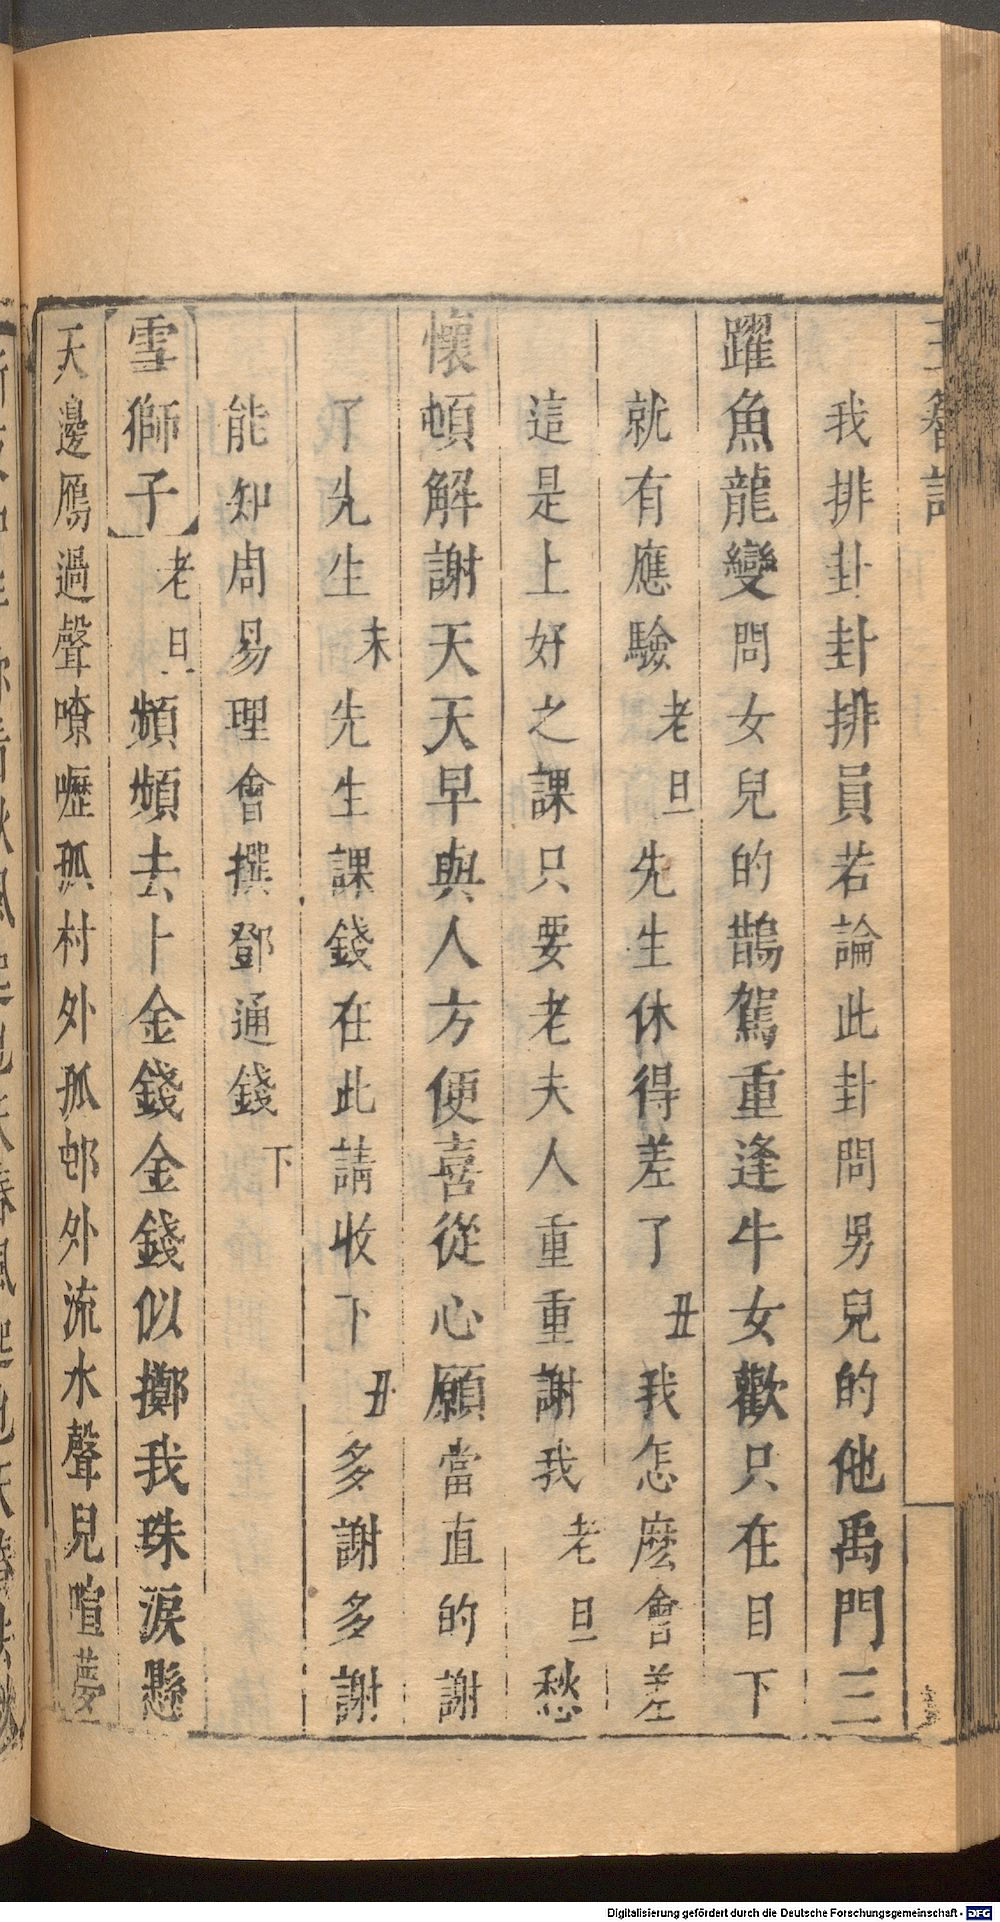 我排卦卦排員若論此卦問男兒的他禹門三
躍魚龍變問女兒的鵲駕重逢牛女歡只在目下
就有應驗老旦先生休得差了丑我怎麽會差
這是上好之課只要老夫人重重謝我老旦愁
懷頓解謝天天早與人方便喜從心願當直的謝
了先生末先生課錢在此請收下丑多謝多謝
能知周易理會撰鄧通錢下
雪獅子老旦頻頻去卜金錢金錢似擲我珠淚懸
天邊鴈過聲嘹嚦孤村外孤邨外流水聲兒喧夢
Digitalisierung gefördert durch die Deutsche Forschungsgemeinschaft - DFG